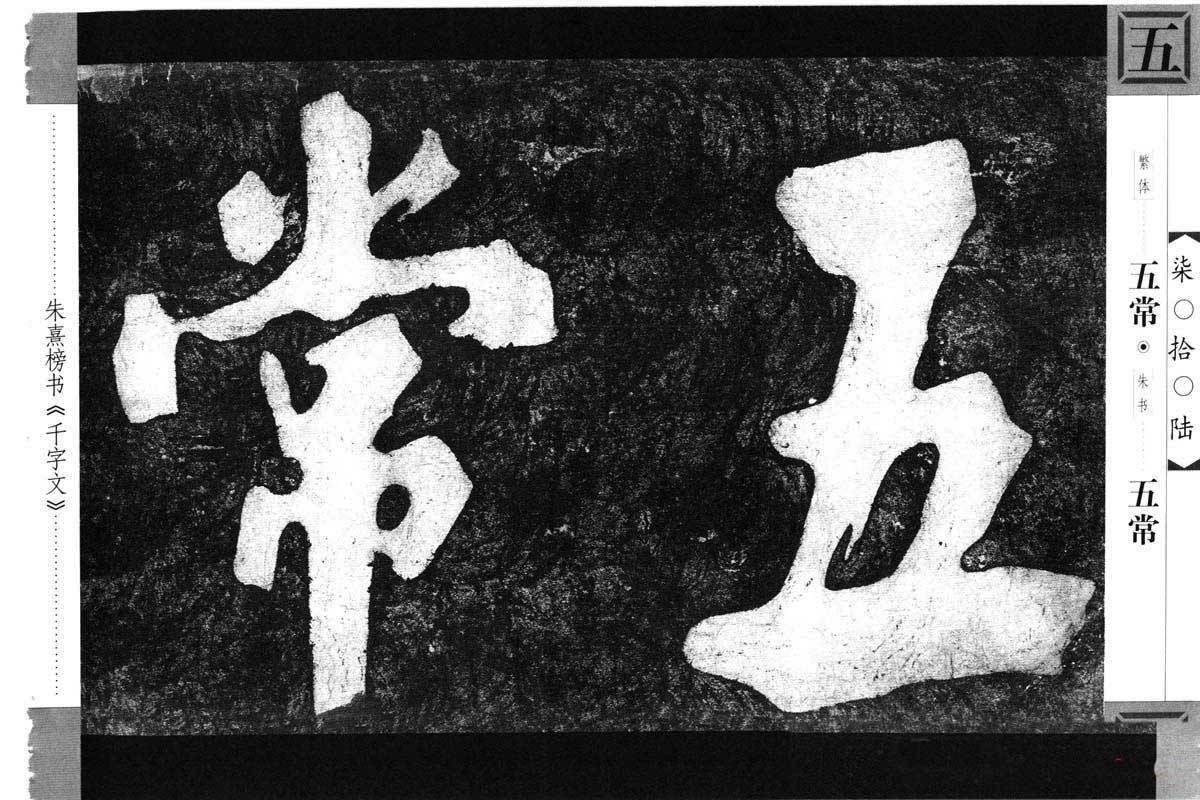 五
柒〇拾〇陆
繁体 五常 ⊙ 朱书 五常
五常
朱熹榜书《千字文》